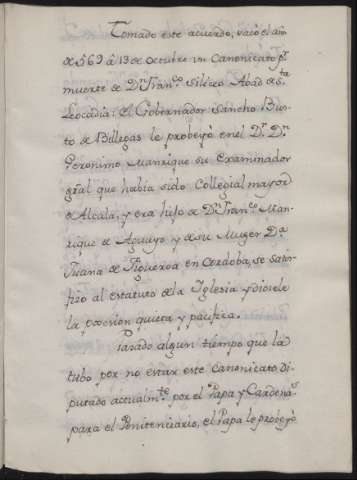 Tomado este acuerdo, vacó el año
de 569 â 13 de octubre un Canonicato pr
muerte de Dn Franco Siliceo Abad de Sta
Leocadia: el Gobernador Sancho Bus-
to de Billegas le probeyó en el Dr. Dn
Geronimo Manrrique su Examinador
gral que habia sido Collegial mayor
de Alcala, y era hijo de Dn Franco Man-
rique de Aguayo y de su Muger Da
Juana de Figueroa en Cordoba, se satis-
fizo al estatuto de la Iglesia y diosele
la posesion quieta y pacifica.
Pasado algun tiempo que la
tubo por no estar este Canonicato Di-
putado actualmte por el Papa y Cardenas
para el Penitenciario, el Papa le probeyó